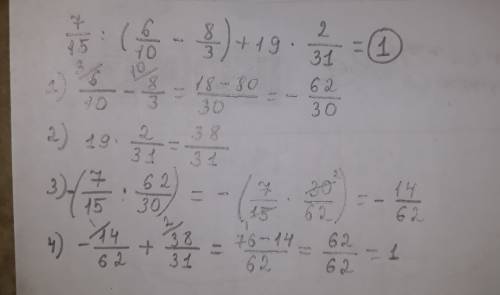 7/15 : (6/10 - 8/3) + 19 · 2/31 = 1
1) 6/10 ³ - 8/3 ¹⁰ = 18-80/30 = - 62/30
2) 19 · 2/31 = 38/31
3) -(7/15 : 62/30) = - (7/15 ₁ · 30/62 ²) = - 14/62
4) - 14/62 ¹ + 38/31 ² = 76-14/62 = 62/62 = 1